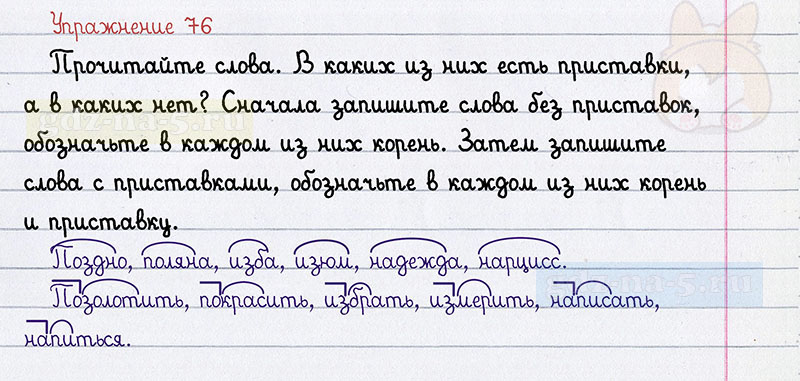 Упражнение 76
Прочитайте слова. В каких из них есть приставки,
а в каких нет? Сначала запишите слова без приставок,
обозначьте в каждом из них корень. Затем запишите
слова с приставками, обозначьте в каждом из них корень
и приставку.
Поздно, поляна, изба, изюм, надежда, нарцисс.
Позолотить, покрасить, избрать, измерить, написать,
напиться.
gdz-na-5.ru
gdz-na-5.ru